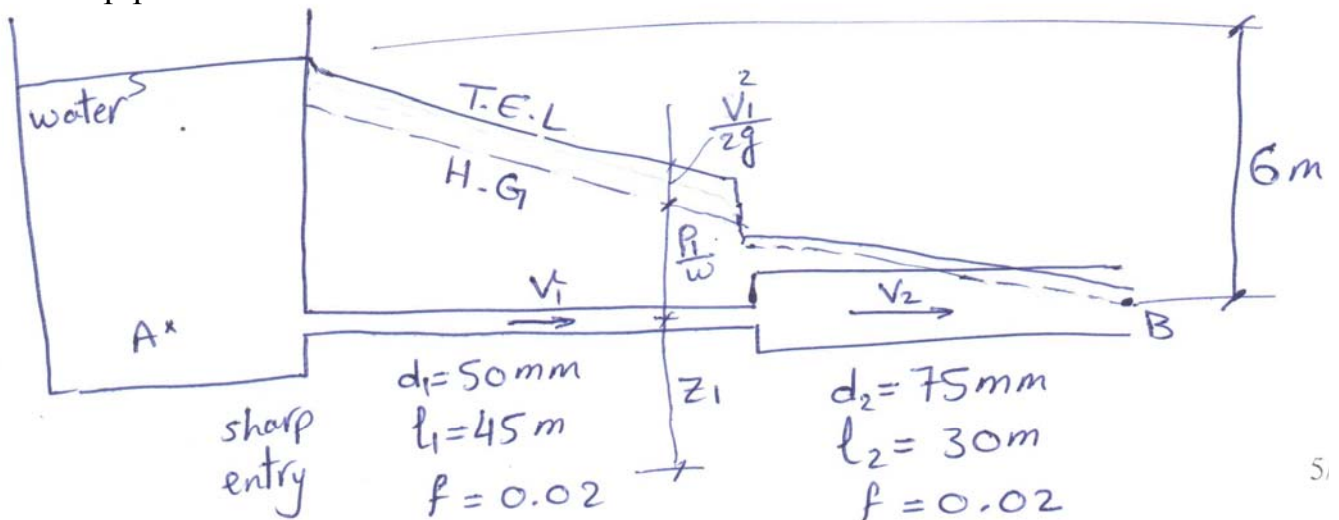 water
T.E.L
H-G
V₁²/2g
P₁/w
6m
V₁
V₂
A*
B
Z₁
sharp
entry
d₁=50mm
l₁=45m
f=0.02
d₂=75mm
l₂=30m
f=0.02